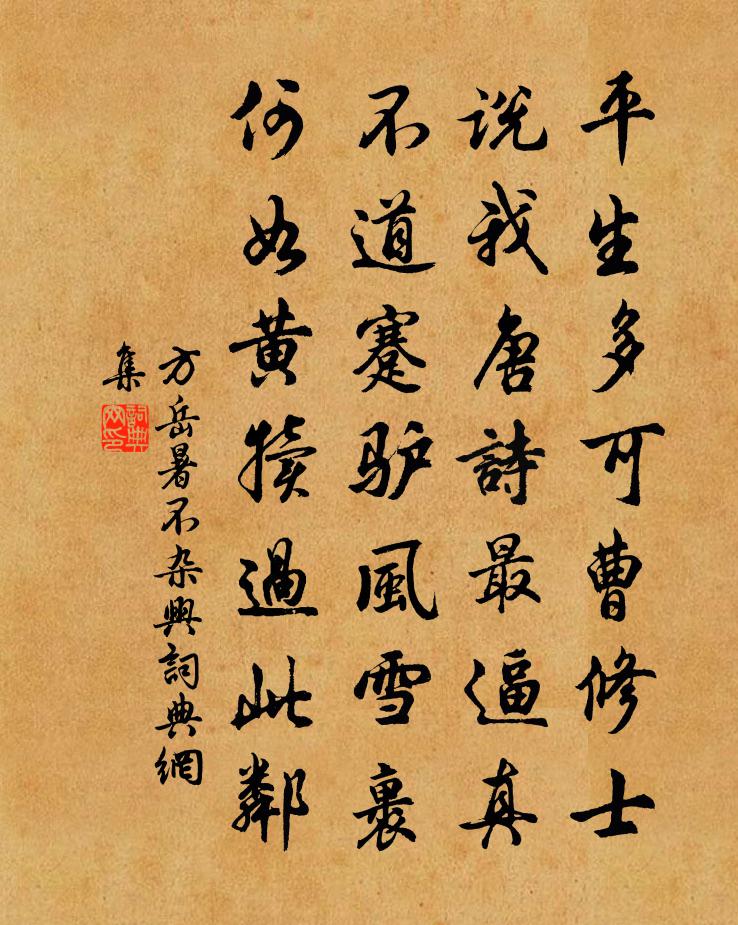 平生多可曹修士
说我唐詩最逼真
不道蹇驴風雪裹
何如黄犊過此鄰
方岳暑不杂興詞典網
集
詞典
网印